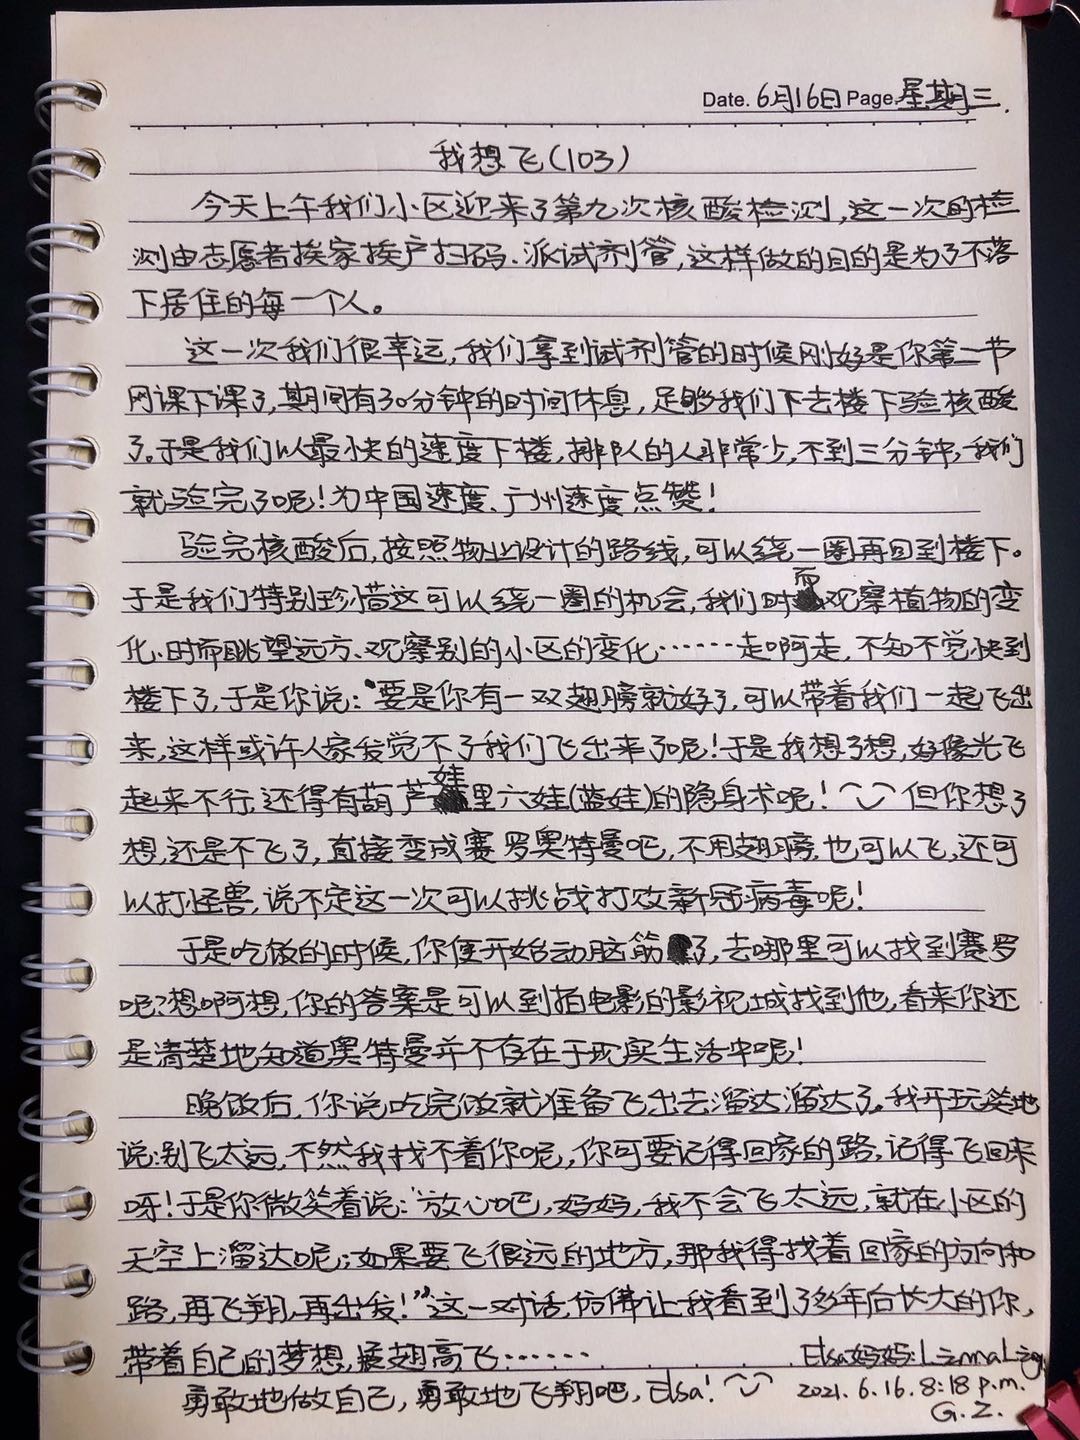 Date. 6月16日 Page. 星期三.
我想飞(103)
今天上午我们小区迎来了第九次核酸检测,这一次的检
测由志愿者挨家挨户扫码、派试剂管,这样做的目的是为了不落
下居住的每一个人。
这一次我们很幸运,我们拿到试剂管的时候刚好是你第二节
网课下课了,期间有30分钟的时间休息,足够我们下去楼下验核酸
了。于是我们以最快的速度下楼,排队的人非常少,不到三分钟,我们
就验完了呢!为中国速度、广州速度点赞!
验完核酸后,按照物业设计的路线,可以绕一圈再回到楼下。
于是我们特别珍惜这可以绕一圈的机会,我们时而观察植物的变
化、时而眺望远方、观察别的小区的变化……走啊走,不知不觉快到
楼下了,于是你说:“要是你有一双翅膀就好了,可以带着我们一起飞出
来,这样或许人家发觉不了我们飞出来了呢!于是我想了想,好像光飞
起来不行,还得有葫芦娃里六娃(蓝娃)的隐身术呢!但你想了
想,还是不飞了,直接变成赛罗奥特曼吧,不用翅膀,也可以飞,还可
以打怪兽,说不定这一次可以挑战打败新冠病毒呢!
于是吃饭的时候,你便开始动脑筋了,去哪里可以找到赛罗
呢?想啊想,你的答案是可以到拍电影的影视城找到他,看来你还
是清楚地知道奥特曼并不存在于现实生活中呢!
晚饭后,你说吃完饭就准备飞出去溜达溜达了。我开玩笑地
说:别飞太远,不然我找不着你呢,你可要记得回家的路,记得飞回来
呀!于是你微笑着说:“放心吧,妈妈,我不会飞太远,就在小区的
天空上溜达呢;如果要飞很远的地方,那我得找着回家的方向和
路,再飞翔,再出发!”这一对话,仿佛让我看到了多年后长大的你,
带着自己的梦想,展翅高飞……
Elsa妈妈:
勇敢地做自己,勇敢地飞翔吧,Elsa!
2021.6.16.8:18 p.m.
G.Z.